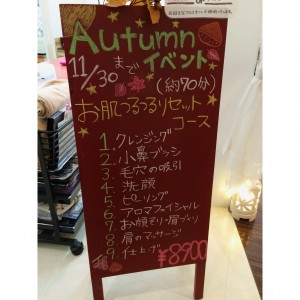 Autumn
11/30まで イベント
(約70分)
お肌つるつるリセット
コース
1. クレンジング
2. 小鼻ブラシ
3. 毛穴の吸引
4. 洗顔
5. ピーリング
6. アロマフェイシャル
7. お顔そり・眉づくり
8. 肩のマッサージ
9. 仕上げ
¥8900